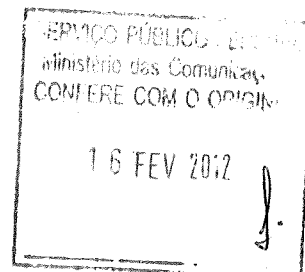 SERVIÇO PÚBLICO
Ministério das Comunicaç
CONFERE COM O ORIGIN
16 FEV 2012